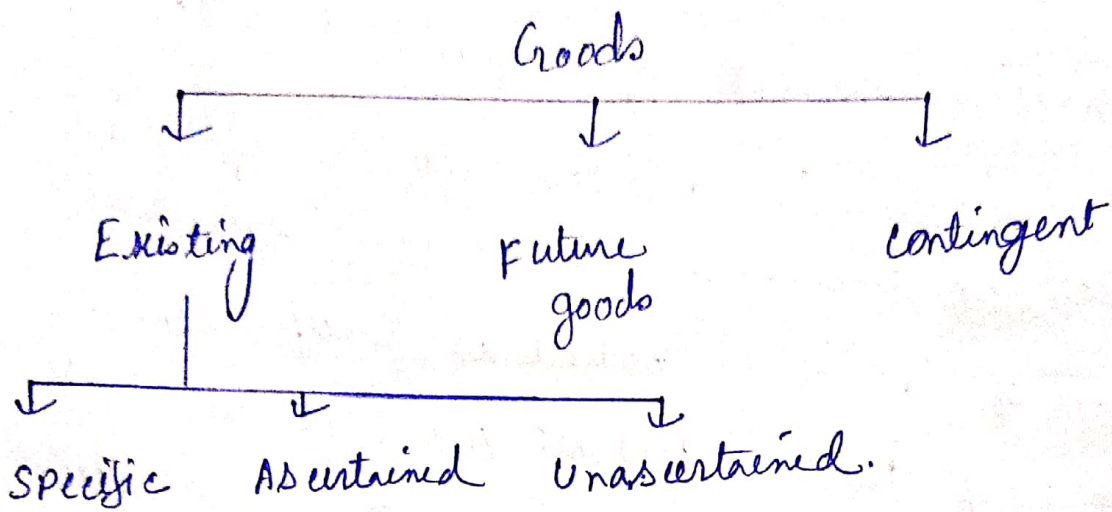 Goods
Existing
Future
goods
Contingent
Specific Ascertained Unascertained.